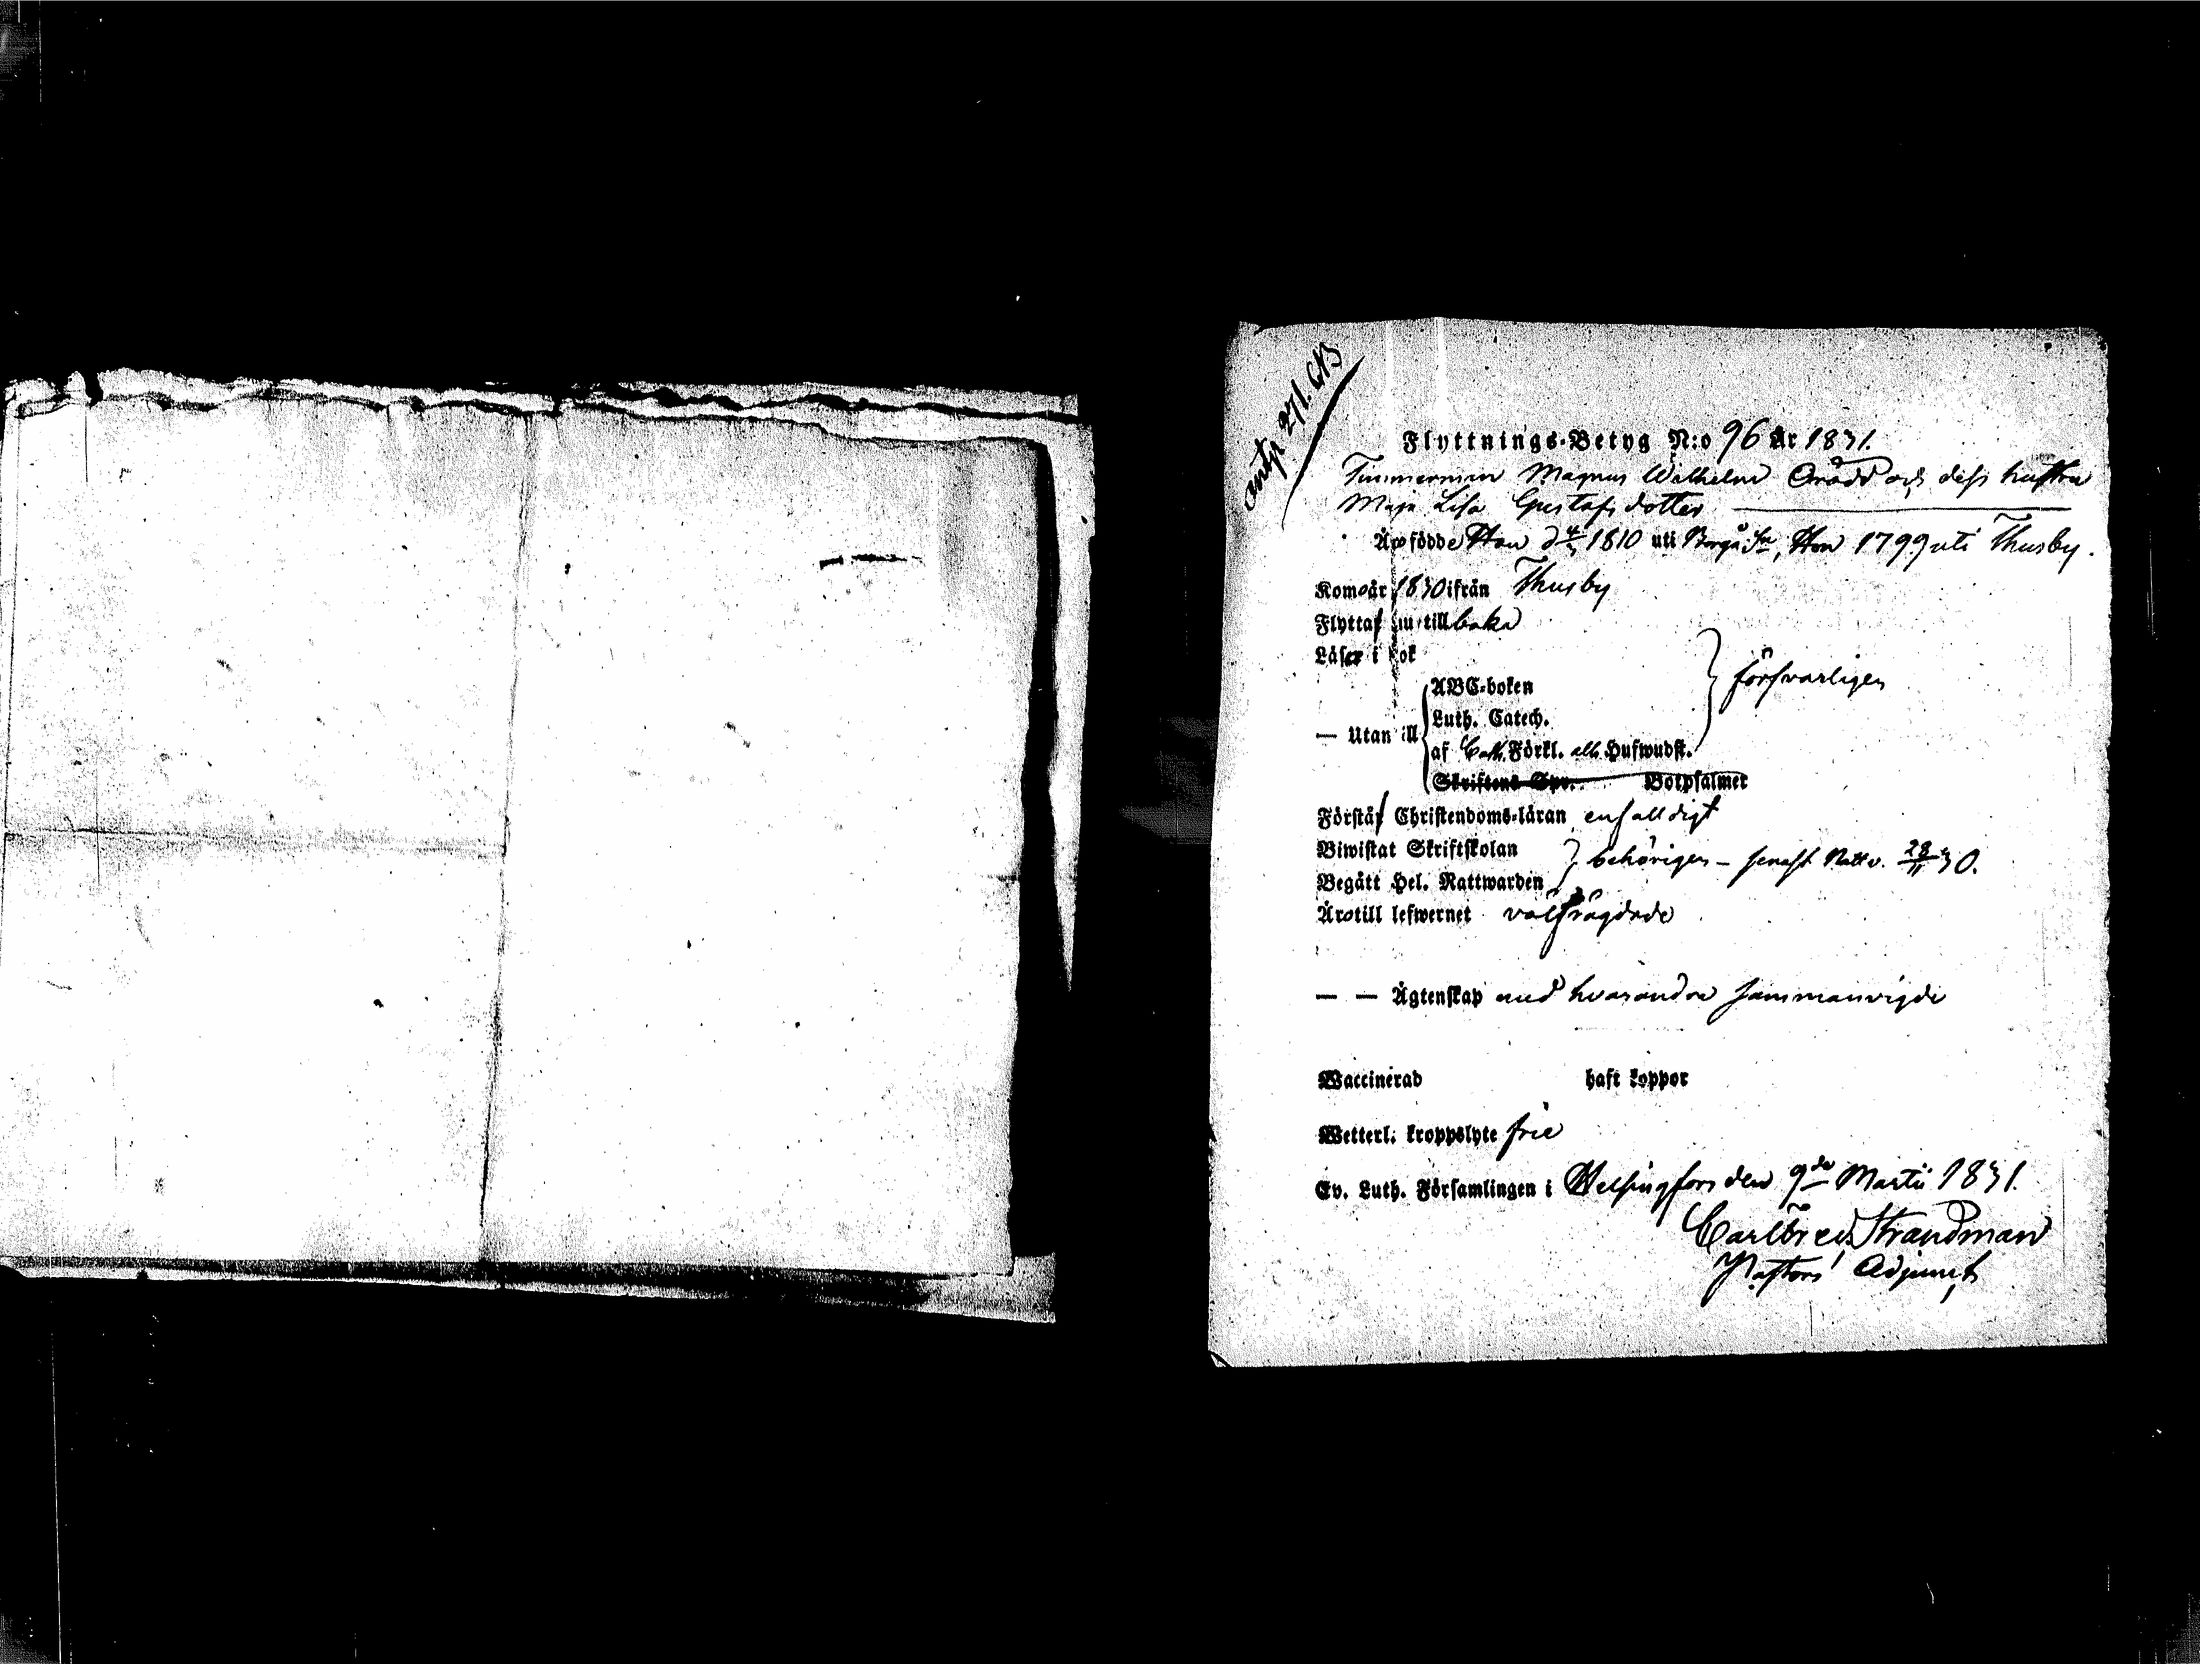 antp. 271. CB
Flyttnings-Betyg N:o 96 År 1831.
Timmerman Magnus Wilhelm och dess hustru
Maja Lisa Gustafsdotter
Äro födde Han d 4/3 1810 uti Borgå Sn, Hon 1799 uti Thusby.
Kom år 1830 ifrån Thusby
Flytta nu tillbaka
Läser i bok
ABC-boken
försvarligen
Luth. Catech.
— Utan till
af Cath. Förkl. alla Hufwudst.
Skriftens Spr. Botpsalmer
Förstå Christendoms-läran enfalldigt
Biwistat Skriftskolan
behörigen – senast Nattv. 28/11 30.
Begått Hel. Nattwarden
Äro till lefwernet välfrägdade
— — Ägtenskap med hvarandra sammanvigde
Waccinerad haft koppor
Wetterl. kroppslyte frie
Ev. Luth. Församlingen i Helsingfors den 9de Martii 1831.
Carl Fred. Strandman
Pastors Adjunct